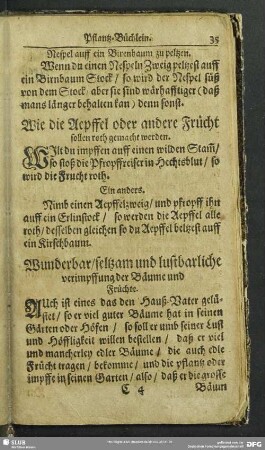 Pflantz-Büchlein. 35
Nespel auff ein Birenbaum zu peltzen.
Wenn du einen Nespeln Zweig peltzest auff
ein Birnbaum Stock / so wird der Nespel süß
von dem Stock / aber sie sind wärhafftiger (daß
mans länger behalten kan) denn sonst.
Wie die Aepffel oder andere Frücht
sollen roth gemacht werden.
WIlt du impffen auff einen wilden Stam̃ /
so stoß die Pfropffreiser in Hechtsblut / so
wird die Frucht roth.
Ein anders.
Nimb einen Aepffelzweig / und pfropff ihn
auff ein Erlinstock / so werden die Aepffel alle
roth / desselben gleichen so du Aepffel beltzest auff
ein Kirschbaum.
Wunderbar / seltzam und lustbarliche
verimpffung der Bäume und
Früchte.
AUch ist eines das den Hauß-Vater gelü-
stet / so er viel guter Bäume hat in seinen
Gärten oder Höfen / so soll er umb seiner Lust
und Höffligkeit willen bestellen / daß er viel
und mancherley edler Bäume / die auch edle
Frücht tragen / bekomme / und die pflantz oder
impffe in seinen Garten / also / daß er die grosse
C 4 Bäum
SLUB